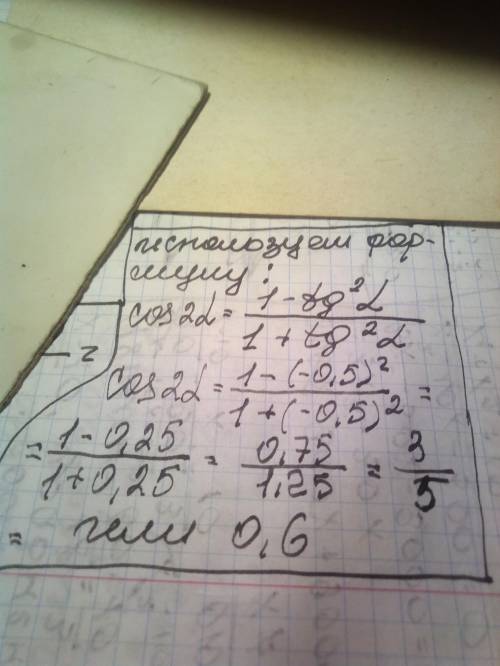 используем фор-
мулу:
cos2α = (1 - tg²α)/(1 + tg²α)
cos2α = (1 - (-0,5)²)/(1 + (-0,5)²) =
= (1 - 0,25)/(1 + 0,25) = 0,75/1,25 = 3/5
= или 0,6